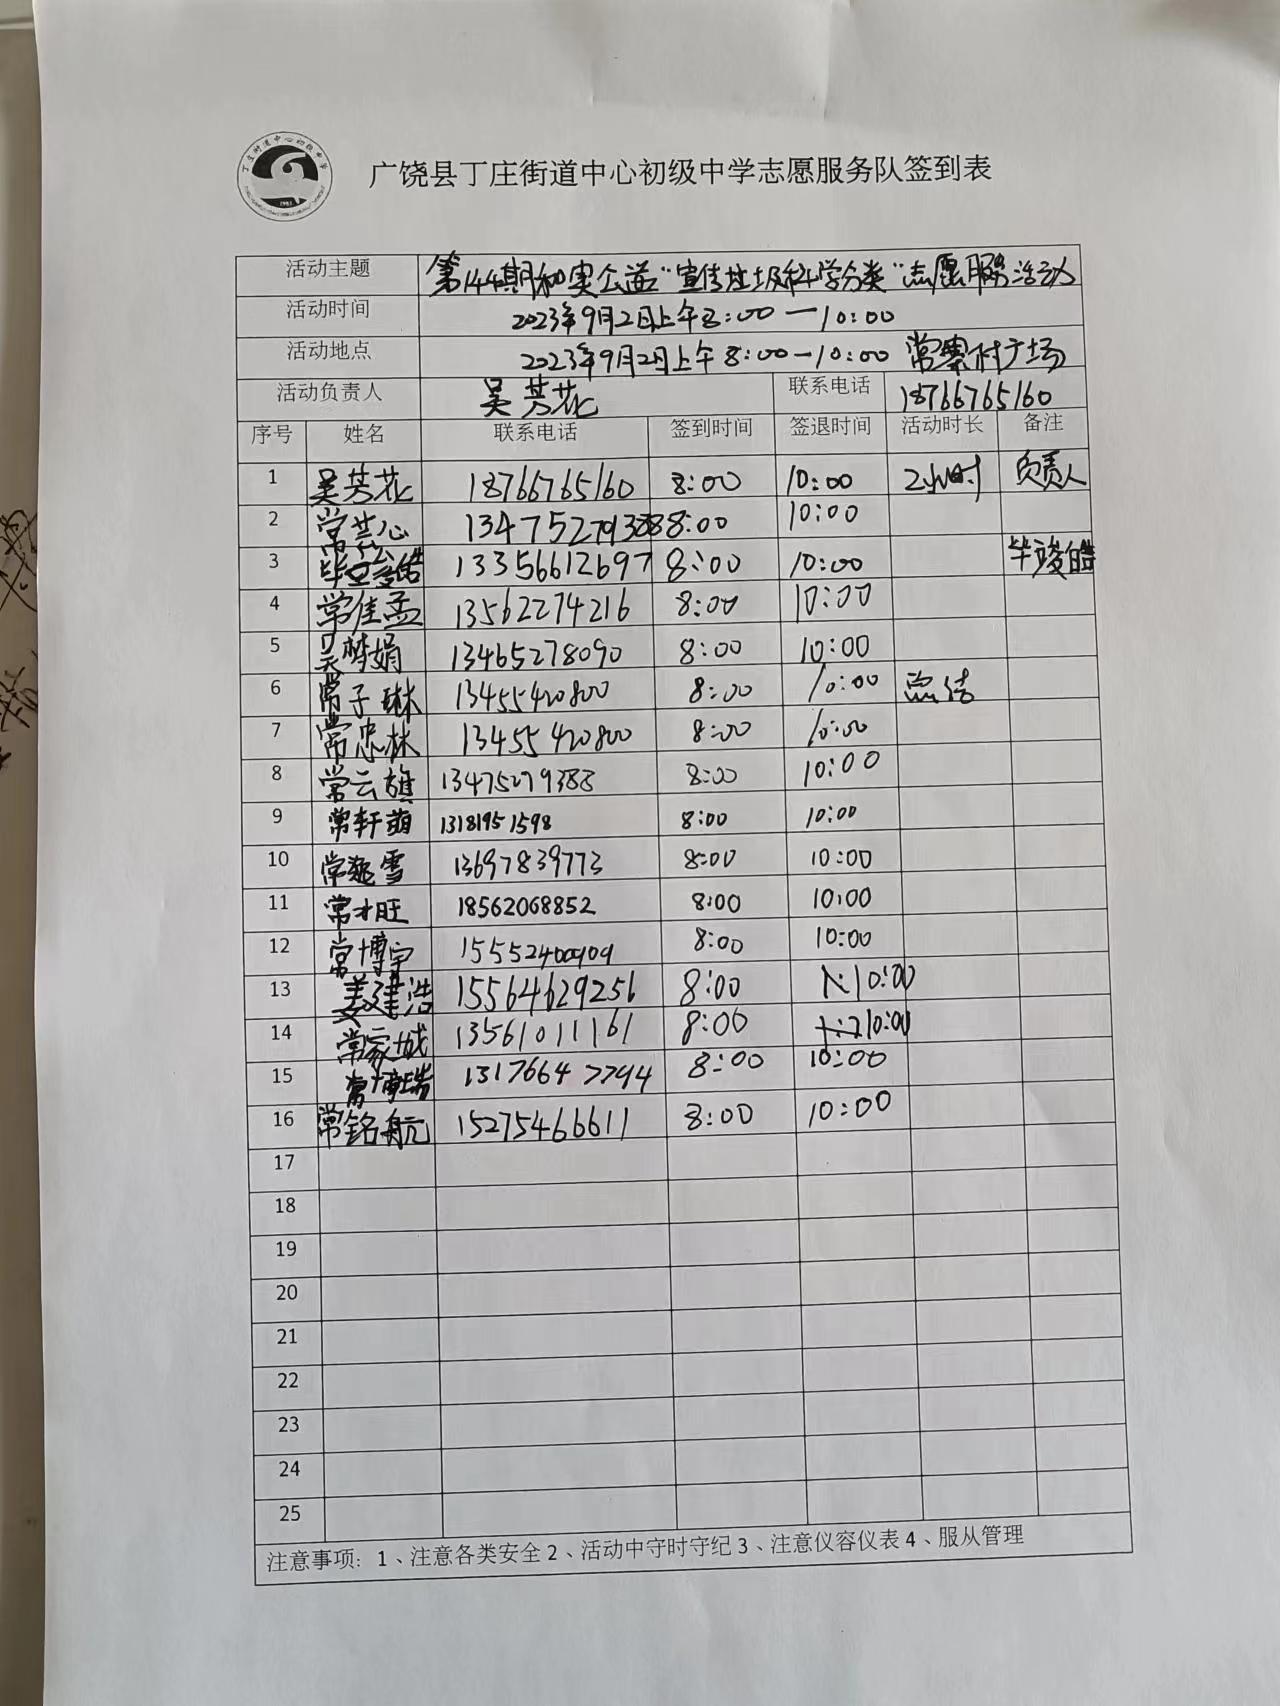 丁庄街道中心初级中学
1983
广饶县丁庄街道中心初级中学志愿服务队签到表
活动主题 第144期和实公益"宣传垃圾科学分类"志愿服务活动
活动时间 2023年9月2日上午8:00—10:00
活动地点 2023年9月2日上午8:00—10:00 常寨村广场
活动负责人 吴芳花 联系电话 18766765160
序号 姓名 联系电话 签到时间 签退时间 活动时长 备注
1 吴芳花 18766765160 8:00 10:00 2小时 负责人
2 常芸心 8:00 10:00
3 毕竣皓 13356612697 8:00 10:00 毕竣皓
4 常佳孟 13562274216 8:00 10:00
5 吴梦娟 13465278090 8:00 10:00
6 常子琳 13455420800 8:00 10:00 总结
7 常忠林 13455420800 8:00 10:00
8 常云旗 13475279388 8:00 10:00
9 常轩萌 13181951598 8:00 10:00
10 常 雪 13697839773 8:00 10:00
11 常才旺 18562068852 8:00 10:00
12 常博宇 8:00 10:00
13 姜建浩 15564629256 8:00 10:00
14 常家城 13561011161 8:00 10:00
15 常博瑞 13176647794 8:00 10:00
16 常铭航 15275466611 8:00 10:00
17
18
19
20
21
22
23
24
25
注意事项: 1、注意各类安全 2、活动中守时守纪 3、注意仪容仪表 4、服从管理